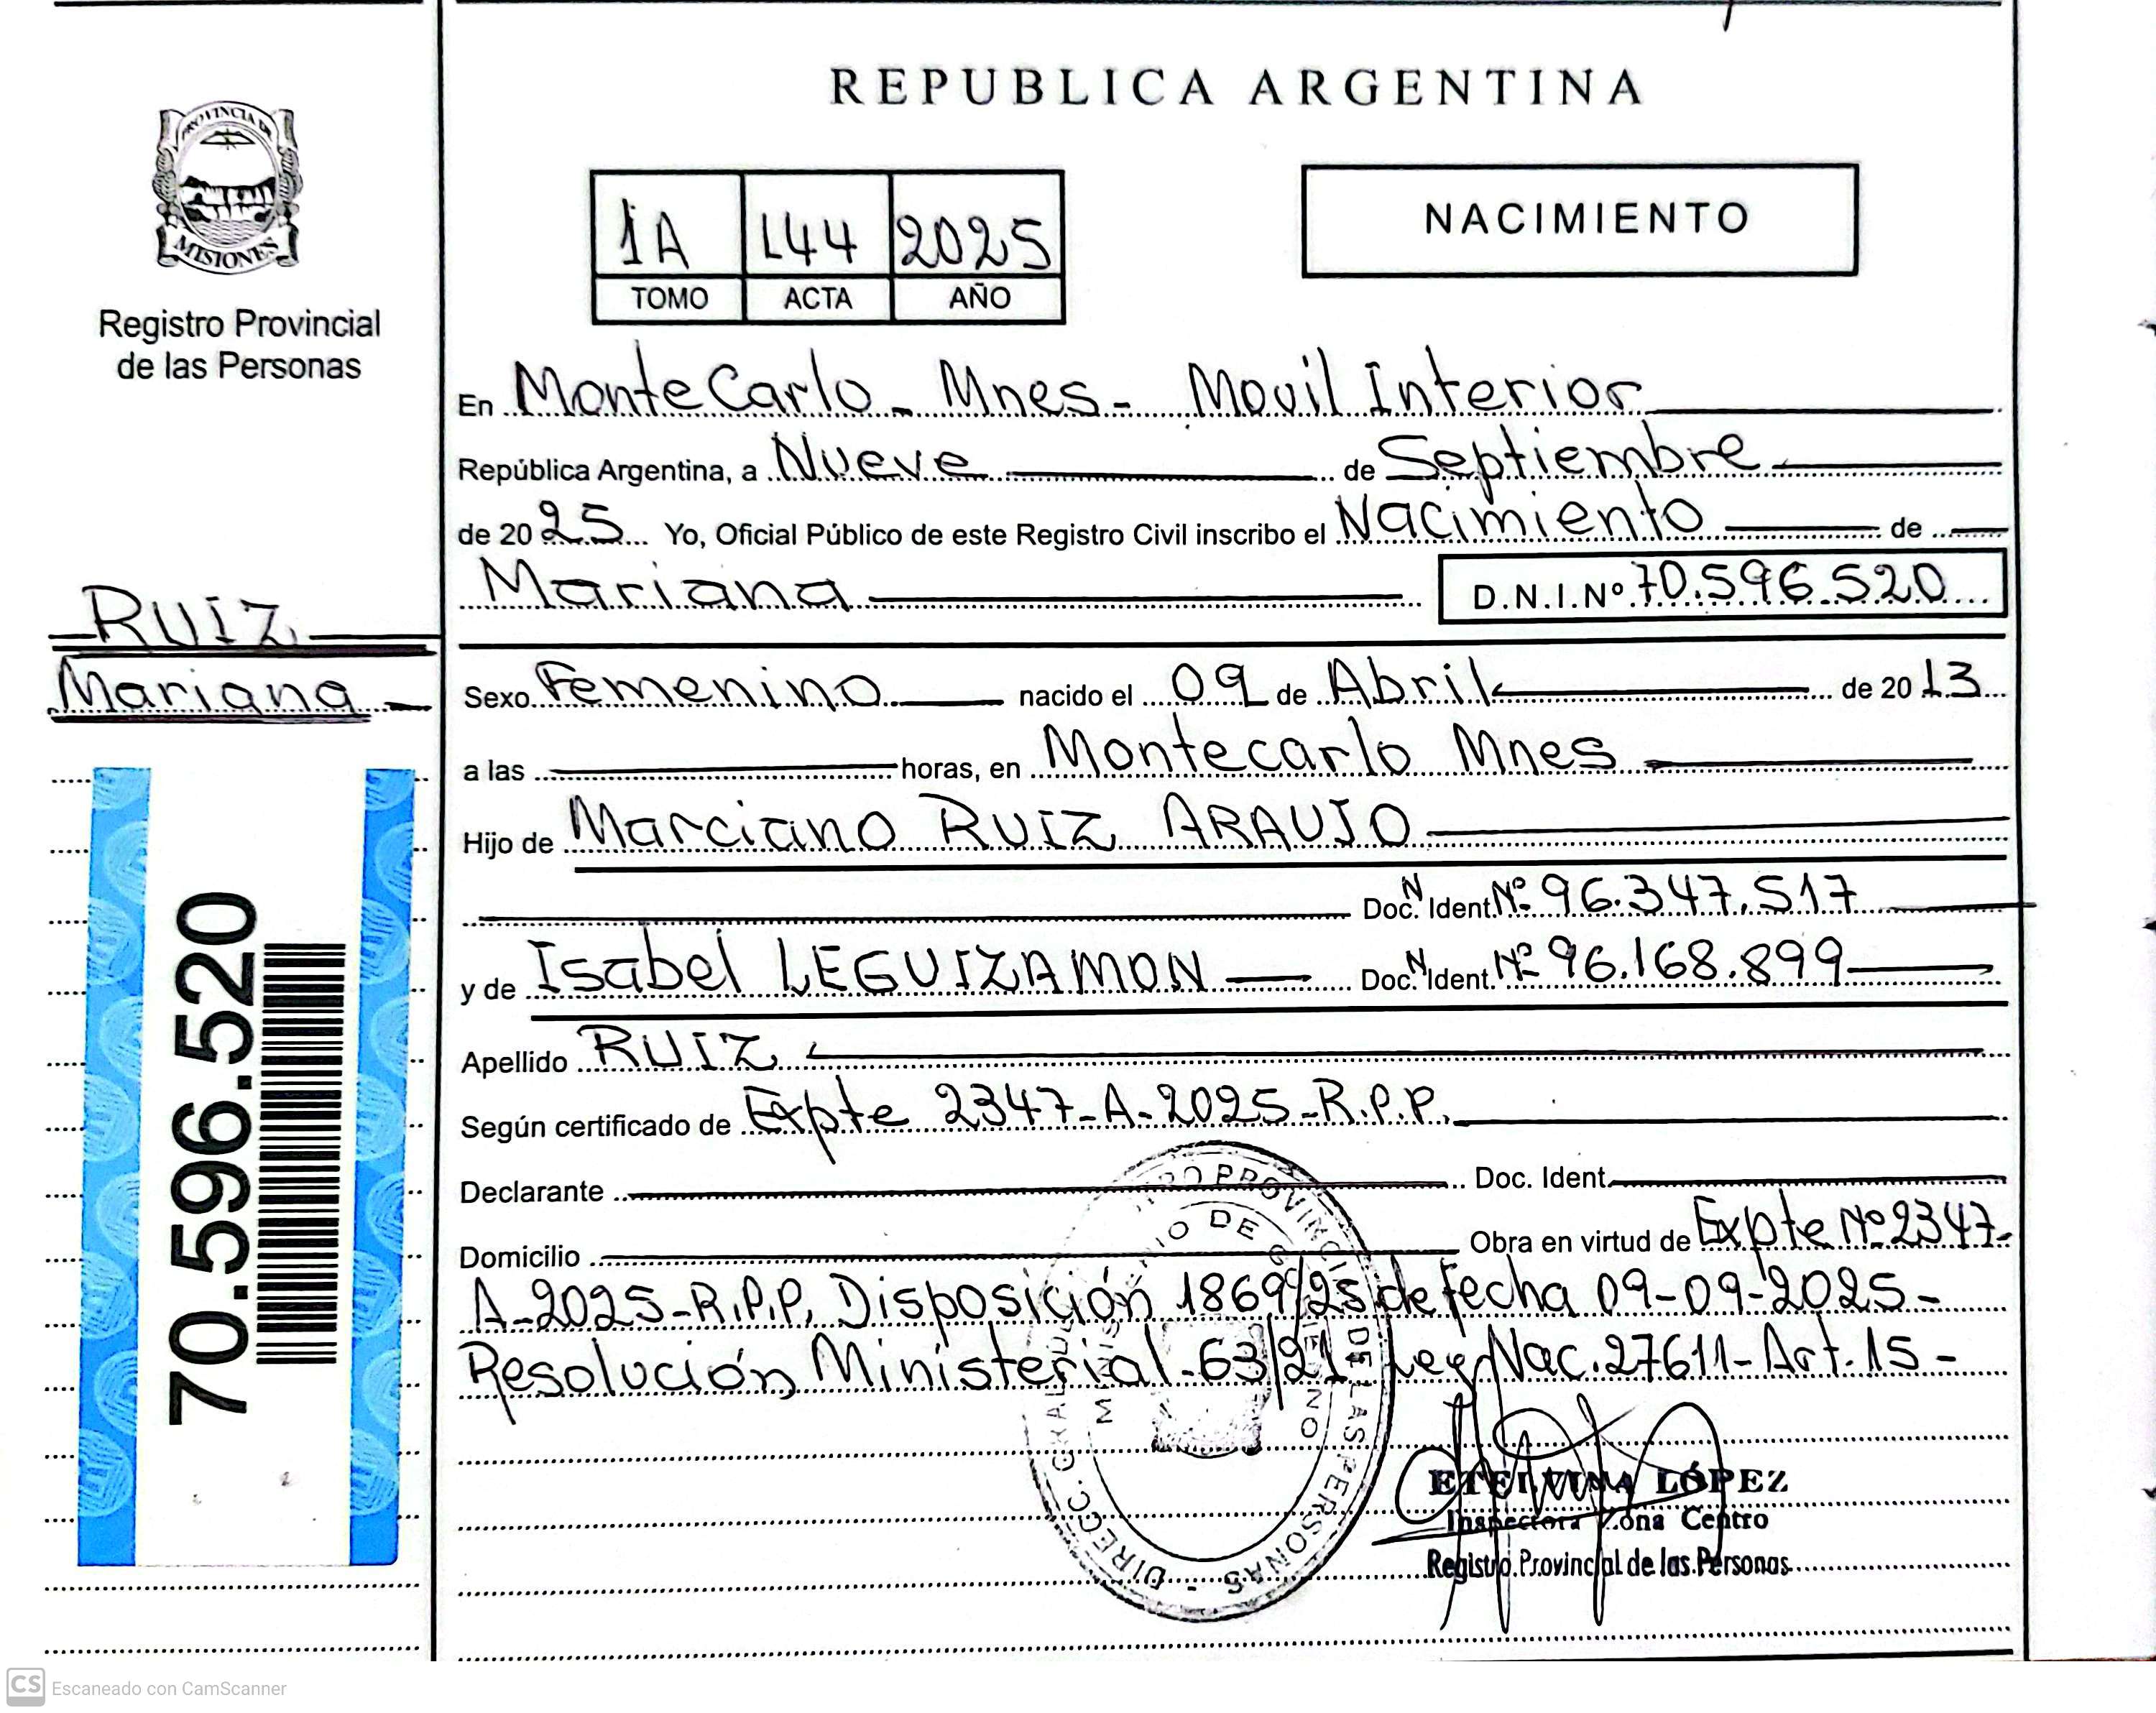 REPUBLICA ARGENTINA
PROVINCIA DE
MISIONES
Registro Provincial
de las Personas
1A L44 2025
TOMO ACTA AÑO
NACIMIENTO
En MonteCarlo - Mnes - Movil Interior
República Argentina, a Nueve de Septiembre
de 20 25 Yo, Oficial Público de este Registro Civil inscribo el Nacimiento de
Mariana D.N.I.Nº 70.596.520
RUIZ
Mariana
Sexo Femenino nacido el 09 de Abril de 20 13
a las horas, en Montecarlo Mnes
Hijo de Marciano RUIZ ARAUJO
Doc. N Ident. Nº 96.347.517
y de Isabel LEGUIZAMON Doc. N Ident. Nº 96.168.899
Apellido RUIZ
Según certificado de Expte 2347-A-2025-R.P.P.
Declarante Doc. Ident.
Domicilio Obra en virtud de Expte Nº 2347-
A-2025-R.P.P, Disposición 1869/25 de fecha 09-09-2025-
Resolución Ministerial-63/21 Ley Nac.27611-Art.15-
70.596.520
DE LAS PERSONAS - DIRECC. GRAL
ETELVINA LÓPEZ
Inspectora Zona Centro
Registro Provincial de las Personas
CS Escaneado con CamScanner